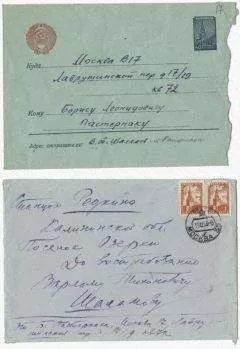 Куда: Москва В17
Лаврушинский пер д 17/19
кв 72
Кому: Борису Леонидовичу
Пастернаку
Адрес отправителя: В. Т. Шаламов
Станция Редкино
Калининской обл.
Поселок Озерки
До востребования
Варламу Тихоновичу
Шаламову
МОСКВА